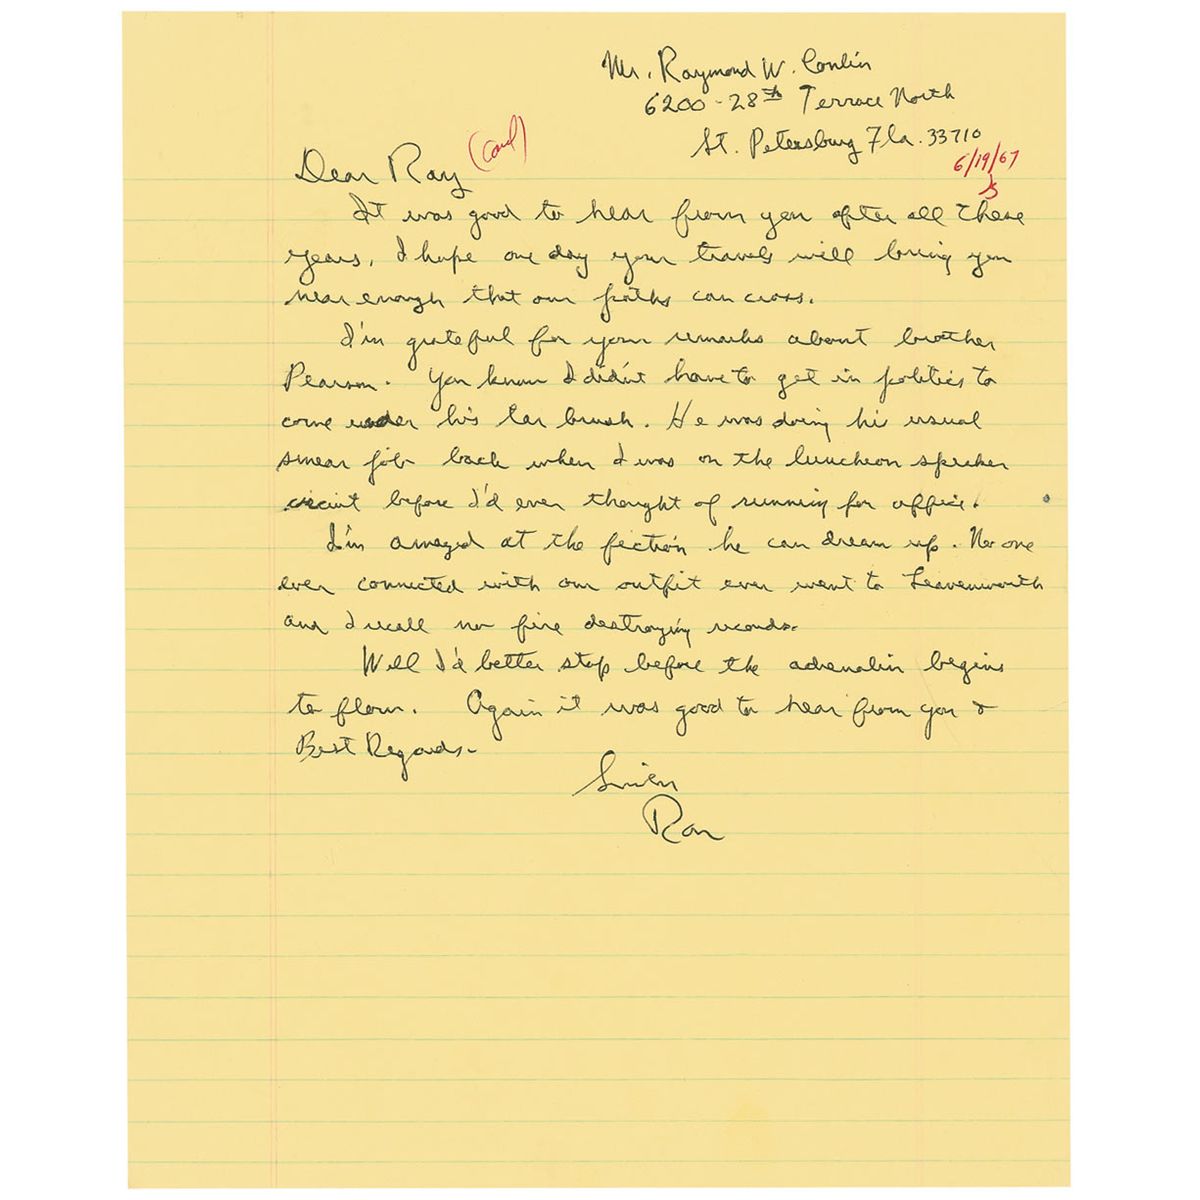 Mr. Raymond W. Conlin
6200 - 28th Terrace North
St. Petersburg Fla. 33710
6/19/67
Dear Ray (card)
It was good to hear from you after all these
years. I hope one day your travels will bring you
near enough that our paths can cross.
I'm grateful for your remarks about brother
Pearson. You know I didn't have to get in politics to
come under his tar brush. He was doing his usual
smear job back when I was on the luncheon speaker
circuit before I'd ever thought of running for office.
I'm amazed at the fiction he can dream up. No one
ever connected with our outfit ever went to Leavenworth
and I recall no fire destroying records.
Well I'd better stop before the adrenalin begins
to flow. Again it was good to hear from you &
Best Regards.
Ron